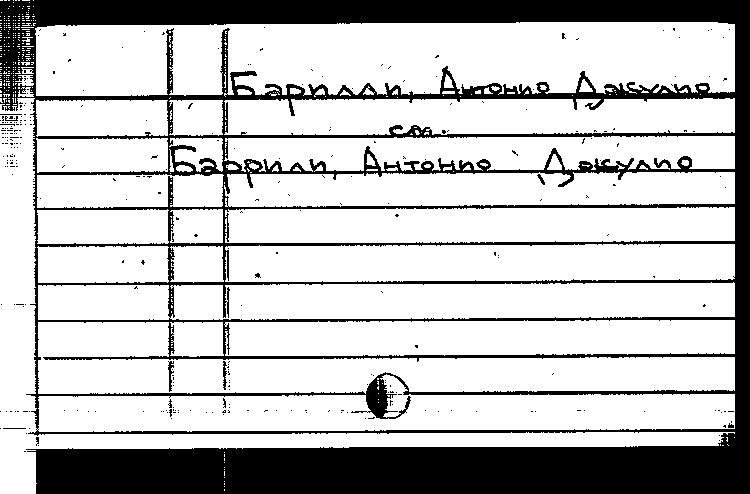 Барилли, Антонио Джулио
см.
Баррили, Антонио Джулио